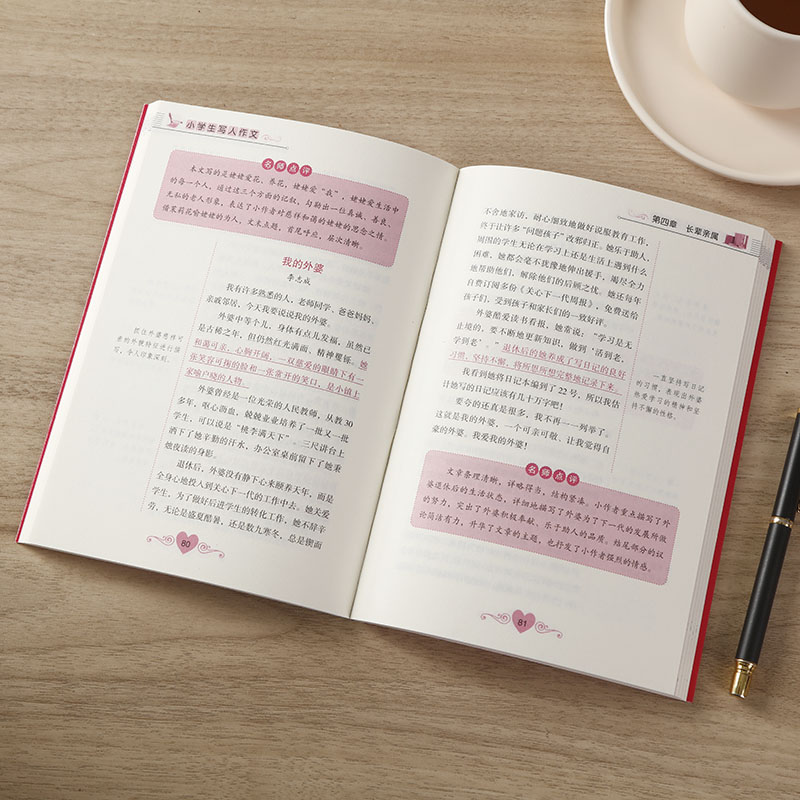 小学生写人作文
名师点评
本文写的是姥姥爱花、养花，姥姥爱“我”，姥姥爱生活中
的每一个人，通过这三个方面的记叙，勾勒出一位真诚、善良、
无私的老人形象，表达了小作者对慈祥和蔼的姥姥的思念之情。
借茉莉花喻姥姥的为人，文末点题，首尾呼应，层次清晰。
我的外婆
李志成
我有许多熟悉的人，老师同学、爸爸妈妈、
亲戚邻居，今天我要说说我的外婆。
外婆中等个儿，身体有点儿发福，虽然已
是古稀之年，但仍然红光满面、精神矍铄。她
和蔼可亲，心胸开阔，一双慈爱的眼睛下有一
张笑容可掬的脸和一张常开的笑口，是小镇上
家喻户晓的人物。
抓住外婆慈祥可
亲的外貌特征进行描
写，令人印象深刻。
外婆曾经是一位光荣的人民教师，从教30
多年，呕心沥血，兢兢业业培养了一批又一批
学生，可以说是“桃李满天下”。三尺讲台上
洒下了她辛勤的汗水，办公室桌前留下了她秉
烛夜读的身影。
退休后，外婆没有静下心来颐养天年，而是
全身心地投入到关心下一代的工作中去。她关爱
学生，为了做好后进学生的转化工作，她不辞辛
劳，无论是盛夏酷暑，还是数九寒冬，总是侧面
80
第四章 长辈亲属
不舍地家访，耐心细致地做好说服教育工作，
终于让许多“问题孩子”改邪归正。她乐于助人，
周围的学生无论在学习上还是生活上遇到什么
困难，她都会毫不犹豫地伸出援手，竭尽全力
地帮助他们，解除他们的后顾之忧。她还每年
自费订阅多份《关心下一代周报》，免费送给
孩子们，受到孩子和家长们的一致好评。
外婆酷爱读书看报，她常说：“学习是无
止境的，要不断地更新知识，做到‘活到老，
学到老’。”退休后的她养成了写日记的良好
习惯，坚持不懈，将所思所想完整地记录下来。
我看到她将日记本编到了22号，所以我估
计她写的日记应该有几十万字吧！
要夸的还真是很多，我不再一一列举了。
这就是我的外婆，一个可亲可敬、让我觉得自
豪的外婆。我爱我的外婆！
一直坚持写日记
的习惯，表现出外婆
热爱学习的精神和坚
持不懈的性格。
名师点评
文章条理清晰，详略得当，结构紧凑。小作者重点描写了外
婆退休后的生活状态，详细地描写了外婆为了下一代的发展所做
的努力，突出了外婆积极奉献、乐于助人的品质。结尾部分的议
论简洁有力，升华了文章的主题，也抒发了小作者强烈的情感。
81